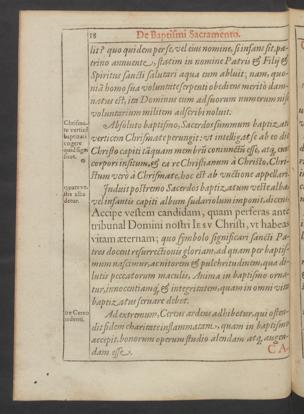 18 De Baptismi Sacramento.
lit? quo quidem per se, vel eius nomine, si infans sit, pa-
trino annuente, statim in nomine Patris & Filij &
Spiritus sancti salutari aqua eum abluit, nam, quo-
niã homo sua voluntate serpenti obediens meritò dam-
natus est, ita Dominus eum ad suorum numerum nisi
voluntarium militem adscribi noluit.
Absoluto baptismo, Sacerdos summum baptizati
verticem Chrismate perungit: vt intelligat se ab eo die
Christo capiti tãquam membrũ coniunctũ esse, atq. eius
corpori insitum, & ea re Christianum à Christo, Chri-
stum verò à Chrismate, hoc est ab vnctione appellari.
Induit postremo Sacerdos baptizatum veste alba
vel infantis capiti album sudariolum imponit, dicens
Accipe vestem candidam, quam perferas ante
tribunal Domini nostri IESV Christi, vt habeas
vitam æternam; quo symbolo significari sancti Pa-
tres docent resurrectionis gloriam, ad quam per baptis-
mum nascimur, ac nitorem & pulchritudinem, qua di-
lutis peccatorum maculis, Anima in baptismo orna-
tur, innocentiamq. & integritatem, quam in omni vita
baptizatus seruare debet.
Ad extremum, Cereus ardens adhibetur, qui osten-
dit fidem charitate inflammatam, quam in baptismo
accepit, bonorum operum studio alendam atq. augen-
dam esse.
CA-